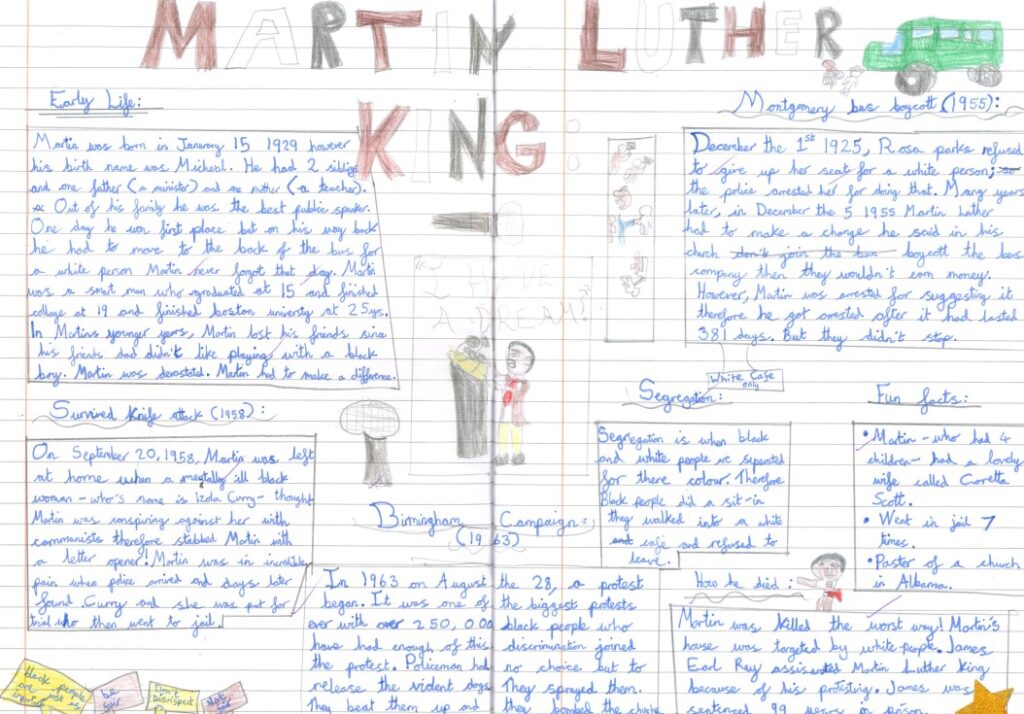 MARTIN LUTHER
KING:
Early Life:
Martin was born in January 15 1929 however
his birth name was Micheal. He had 2 siblings
and one father (a minister) and one mother (a teacher).
Out of his family he was the best public speaker.
One day he won first place but on his way back
he had to move to the back of the bus for
a white person Martin never forgot that day. Martin
was a smart man who graduated at 15 and finished
collage at 19 and finished boston university at 25yrs.
In Martins younger years, Martin lost his friends since
his friends dad didn't like playing with a black
boy. Martin was devostated. Martin had to make a difference.
Survived Knife attack (1958):
On September 20, 1958, Martin was left
at home when a mentally ill black
woman - who's name is Izola Curry - thought
Martin was conspiring against her with
communists therefore stabbed Martin with
a letter opener! Martin was in incredible
pain when police arrived and days later
found Curry and she was put for
trial who then went to jail.
black people are as
be
Don't disrespect
I HAVE
A DREAM!
Birmingham Campaign:
(1963)
In 1963 on August the 28, a protest
began. It was one of the biggest protests
ever with over 250,000 black people who
have had enough of this discrimination joined
the protest. Policeman had no choice but to
release the violent dogs They sprayed them.
They beat them up and they bombed the church
Montgomery bus boycott (1955):
December the 1st 1925, Rosa parks refused
to give up her seat for a white person;
the police arrested her for doing that. Many years
later, in December the 5 1955 Martin Luther
had to make a change he said in his
church don't join the bus boycott the bus
company then they wouldn't earn money.
However, Martin was arrested for suggesting it
therefore he got arrested after it had lasted
381 days. But they didn't stop.
White Cafe
only
Segregation:
Segregation is when black
and white people are seperated
for there colour. Therefore
Black people did a sit-in
they walked into a white
and cafe and refused to
leave.
Fun facts:
• Martin - who had 4
children - had a lovely
wife called Coretta
Scott.
• Went in jail 7
times.
• Pastor of a church
in Albama.
How he died:
Martin was killed the worst way! Martin's
house was targeted by white people. James
Earl Ray assisnated Martin Luther King
because of his protesting. James was
sentenced 99 years in prison.